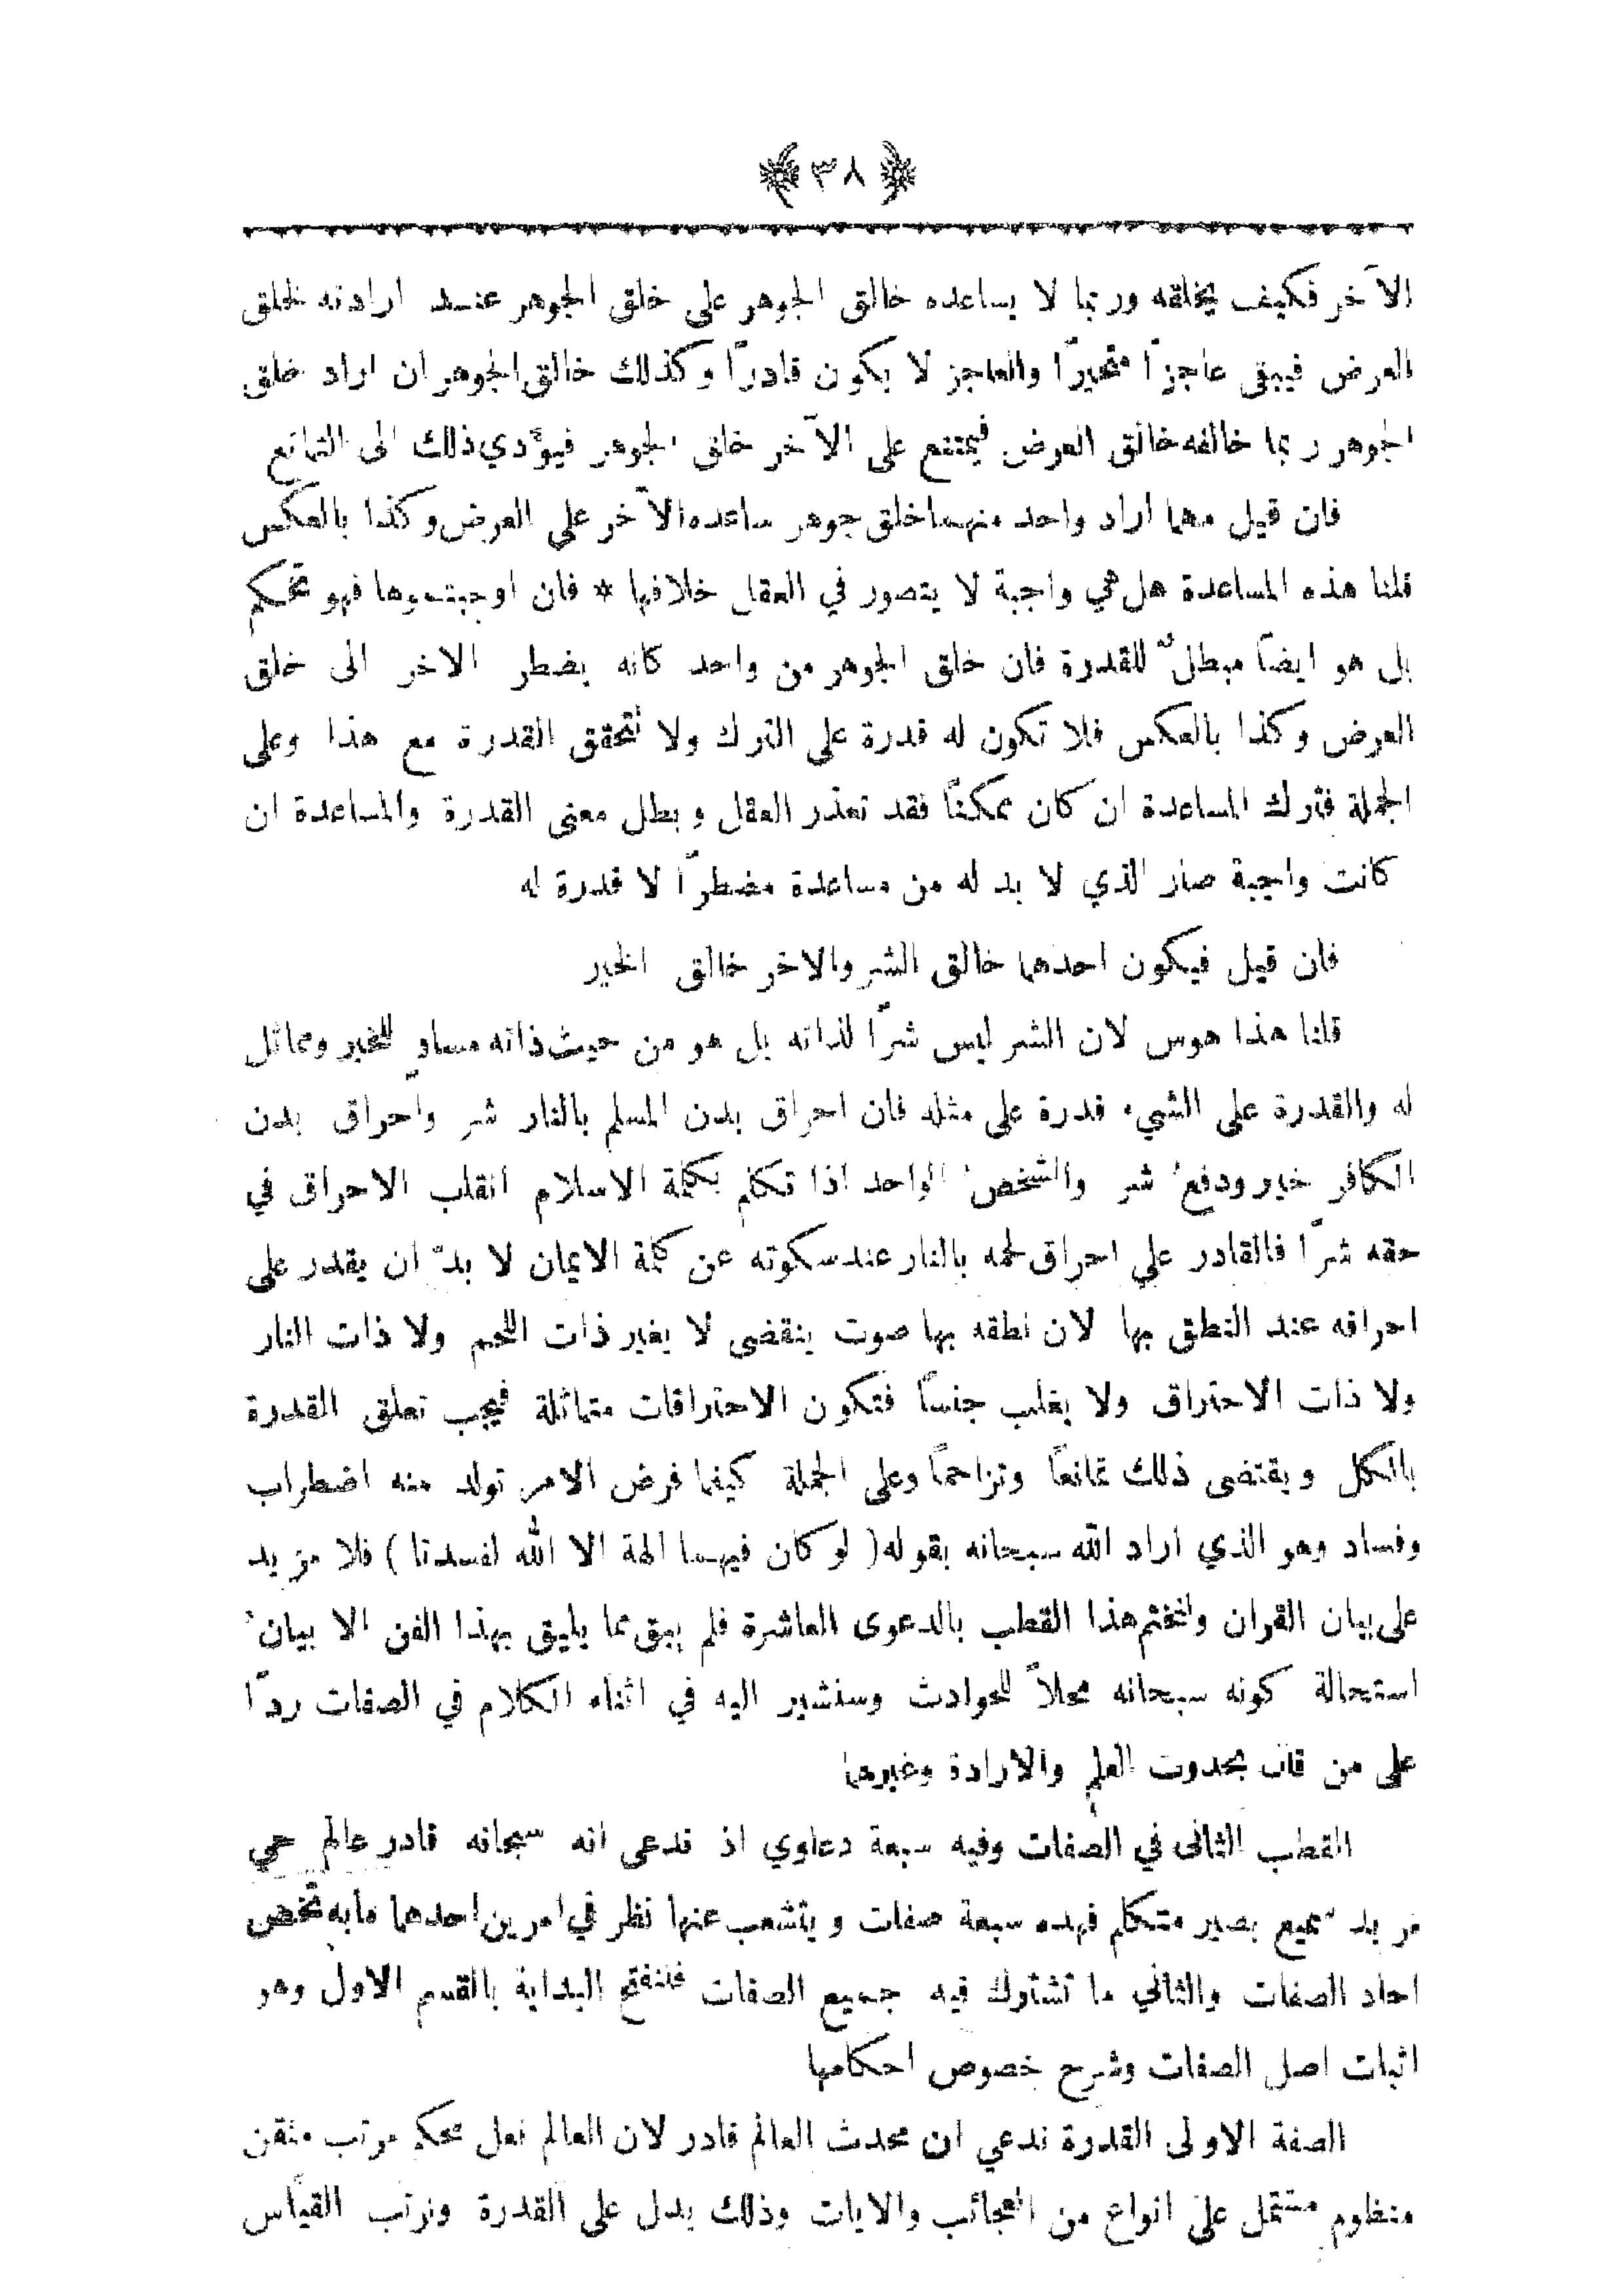 ٣٨
الآخر فكيف يخلقه وربما لا يساعده خالق الجوهر على خلق الجوهر عند ارادته لخلق
العرض فيبقى عاجزًا متحيرًا والعاجز لا يكون قادرًا وكذلك خالق الجوهر ان اراد خلق
الجوهر ربما خالفه خالق العرض فيمتنع على الآخر خلق الجوهر فيؤدي ذلك الى التمانع
فان قيل مهما اراد واحد منهما خلق جوهر ساعده الآخر على العرض وكذا بالعكس
قلنا هذه المساعدة هل هي واجبة لا يتصور في العقل خلافها * فان اوجبتموها فهو تحكم
بل هو ايضًا مبطلٌ للقدرة فان خلق الجوهر من واحد كانه يضطر الاخر الى خلق
العرض وكذا بالعكس فلا تكون له قدرة على الترك ولا لتحقق القدرة مع هذا وعلى
الجملة فترك المساعدة ان كان ممكنًا فقد تعذر العقل وبطل معنى القدرة والمساعدة ان
كانت واجبة صار الذي لا بد له من مساعدة مضطرًا لا قدرة له
فان قيل فيكون احدهما خالق الشر والاخر خالق الخير
قلنا هذا هوس لان الشر ليس شرًا لذاته بل هو من حيث ذاته مساوٍ للخير ومماثل
له والقدرة على الشيء قدرة على مثله فان احراق بدن المسلم بالنار شر واحراق بدن
الكافر خير ودفعُ شر والشخصُ الواحد اذا تكلم بكلمة الاسلام انقلب الاحراق في
حقه شرًا فالقادر على احراق لحمه بالنار عند سكوته عن كلمة الايمان لا بدّ ان يقدر على
احراقه عند النطق بها لان نطقه بها صوت ينقضى لا يغير ذات اللحم ولا ذات النار
ولا ذات الاحتراق ولا يقلب جنسًا فتكون الاحتراقات متماثلة فيجب تعلق القدرة
بالكل ويقتضى ذلك تمانعًا وتزاحمًا وعلى الجملة كيفما فرض الامر تولد منه اضطراب
وفساد وهو الذي اراد الله سبحانه بقوله ( لو كان فيهما الهة الا الله لفسدتا ) فلا مزيد
على بيان القران ولنختم هذا القطب بالدعوى العاشرة فلم يبق مما يليق بهذا الفن الا بيانُ
استحالة كونه سبحانه محلاً للحوادث وسنشير اليه في اثناء الكلام في الصفات ردًا
على من قال بحدوث العلم والارادة وغيرهما
القطب الثانى في الصفات وفيه سبعة دعاوي اذ ندعى انه سبحانه قادر عالم حي
مريد سميع بصير متكلم فهذه سبعة صفات ويتشعب عنها نظر في امرين احدهما ما به تخص
احاد الصفات والثاني ما تشترك فيه جميع الصفات فلنفتح البداية بالقسم الاول وهو
اثبات اصل الصفات وشرح خصوص احكامها
الصفة الاولى القدرة ندعي ان محدث العالم قادر لان العالم فعل محكم مرتب متقن
منظوم مشتمل على انواع من العجائب والايات وذلك يدل على القدرة ونرتب القياس